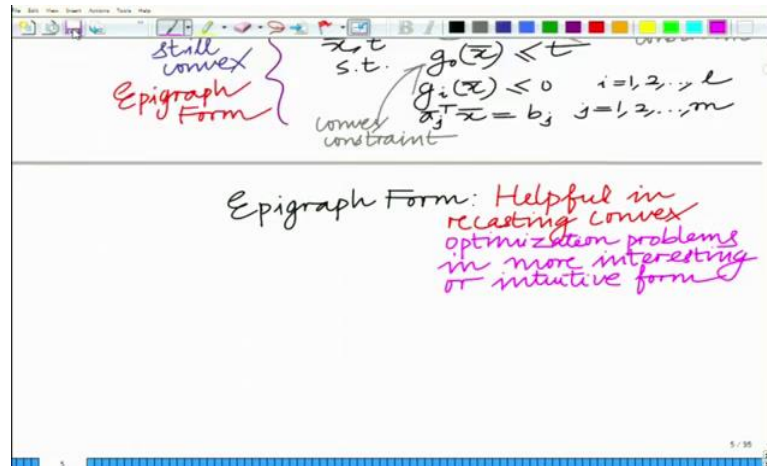 File Edit View Insert Actions Tools Help
B I
still x̄, t g₀(x̄) ≤ t
convex s.t. gᵢ(x̄) ≤ 0 i=1,2,..,l
Epigraph āⱼᵀx̄ = bⱼ j=1,2,..,m
Form convex
constraint
Epigraph Form: Helpful in
recasting convex
optimization problems
in more interesting
or intuitive form
5 / 35
5